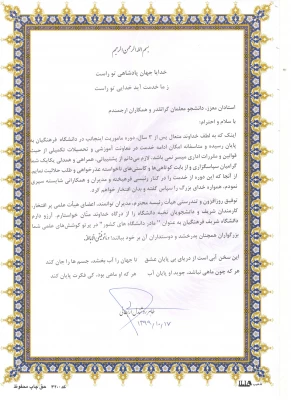 بسم الله الرحمن الرحیم
خدایا جهان پادشاهی تو راست
ز ما خدمت آید خدایی تو راست
استادان معزز، دانشجو معلمان گرانقدر و همکاران ارجمندم
با سلام و احترام؛
اینک که به لطف خداوند متعال پس از ۳ سال، دوره ماموریت اینجانب در دانشگاه فرهنگیان به
پایان رسیده و متاسفانه امکان ادامه خدمت در معاونت آموزشی و تحصیلات تکمیلی از حیث
قوانین و مقررات اداری میسر نمی باشد، لازم می‌دانم از پشتیبانی، همراهی و همدلی یکایک شما
گرامیان سپاسگزاری و از بابت کوتاهی‌ها و کاستی‌های ناخواسته عذرخواهی و طلب حلالیت نمایم.
از آنجا که این دوره از خدمت را در کنار رئیسی فرهیخته و مدیران و همکارانی شایسته سپری
نمودم، همواره خدای بزرگ را سپاس گفته و بدان افتخار خواهم کرد.
توفیق روزافزون و تندرستی هیأت رئیسه محترم، مدیران توانمند، اعضای هیأت علمی پر افتخار،
کارمندان شریف و دانشجویان نخبه دانشگاه را از درگاه خداوند منان خواستارم. آرزو دارم
دانشگاه شریف فرهنگیان به عنوان "مادر دانشگاه های کشور" در پرتو کوشش‌های علمی شما
بزرگواران همچنان بدرخشد و دوستداران آن بر خود ببالند؛
این سخن آبی است از دریای بی پایان عشق تا جهان را آب بخشد، جسم ها را جان کند
هر که چون ماهی نباشد، جوید او پایان آب هر که او ماهی بود، کی فکرت پایان کند
۱۳۹۹/۱۰/۱۷
حق چاپ محفوظ